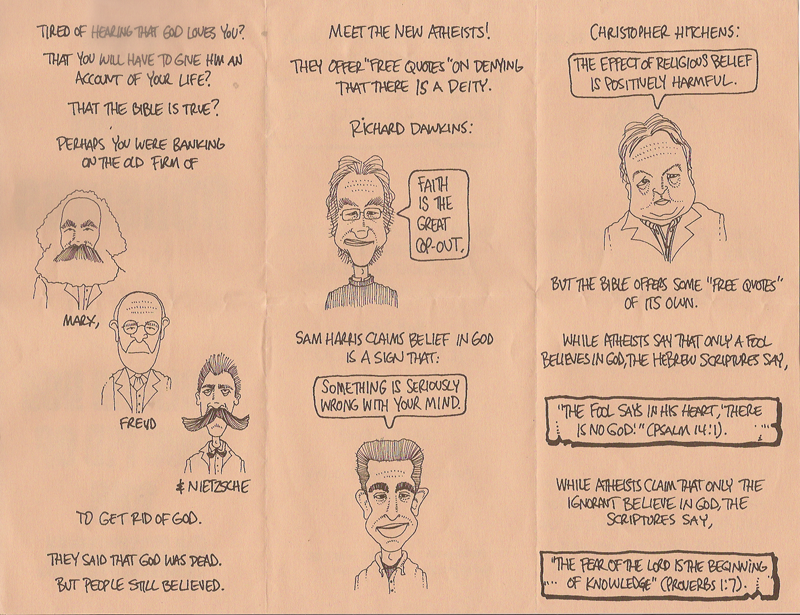 TIRED OF HEARING THAT GOD LOVES YOU?
THAT YOU WILL HAVE TO GIVE HIM AN
ACCOUNT OF YOUR LIFE?
THAT THE BIBLE IS TRUE?
PERHAPS YOU WERE BANKING
ON THE OLD FIRM OF
MARX,
FREUD
& NIETZSCHE
TO GET RID OF GOD.
THEY SAID THAT GOD WAS DEAD.
BUT PEOPLE STILL BELIEVED.
MEET THE NEW ATHEISTS!
THEY OFFER "FREE QUOTES" ON DENYING
THAT THERE IS A DEITY.
RICHARD DAWKINS:
FAITH
IS THE
GREAT
COP-OUT.
SAM HARRIS CLAIMS BELIEF IN GOD
IS A SIGN THAT:
SOMETHING IS SERIOUSLY
WRONG WITH YOUR MIND.
CHRISTOPHER HITCHENS:
THE EFFECT OF RELIGIOUS BELIEF
IS POSITIVELY HARMFUL.
BUT THE BIBLE OFFERS SOME "FREE QUOTES"
OF ITS OWN.
WHILE ATHEISTS SAY THAT ONLY A FOOL
BELIEVES IN GOD, THE HEBREW SCRIPTURES SAY,
"THE FOOL SAYS IN HIS HEART, 'THERE
IS NO GOD.'" (PSALM 14:1).
WHILE ATHEISTS CLAIM THAT ONLY THE
IGNORANT BELIEVE IN GOD, THE
SCRIPTURES SAY,
"THE FEAR OF THE LORD IS THE BEGINNING
OF KNOWLEDGE" (PROVERBS 1:7).